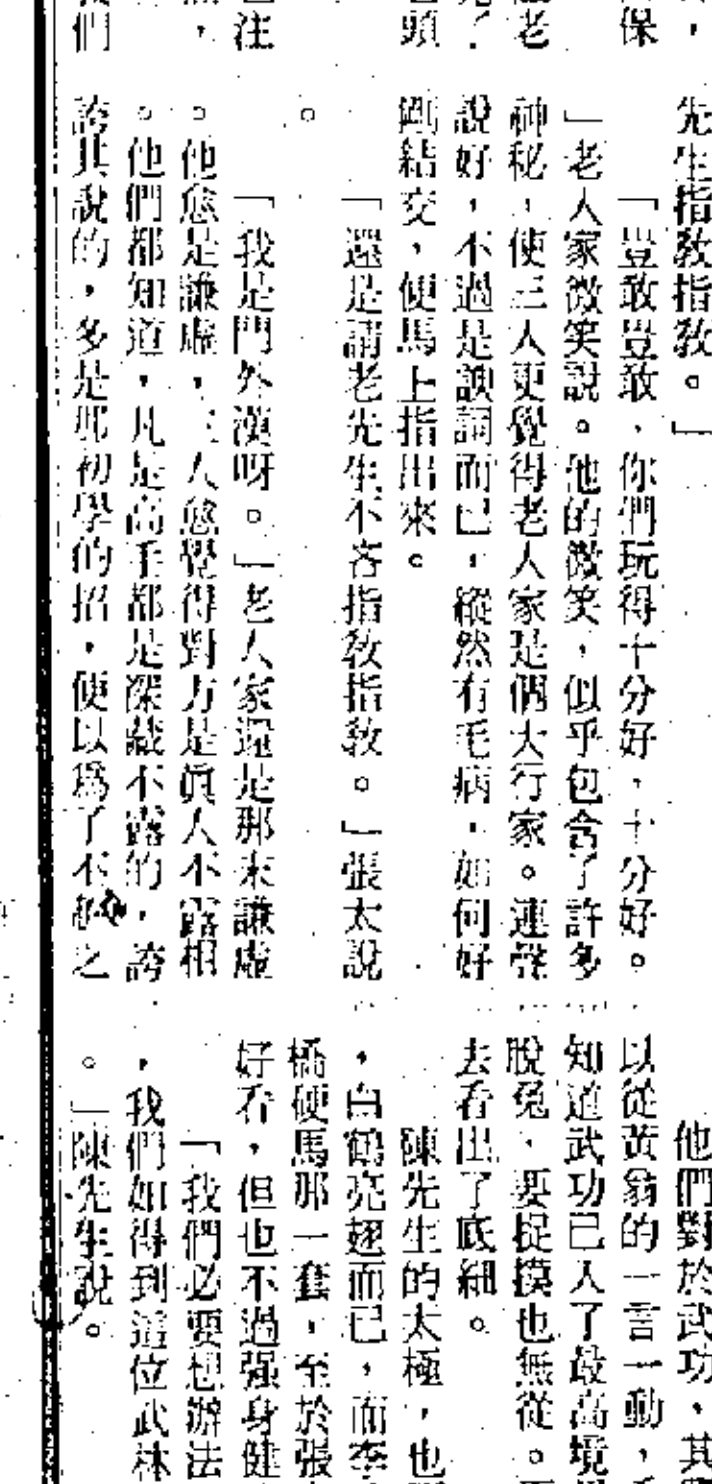 保，
老
兒了
頭
注
，
們
先生指敎指敎。」
「豈敢豈敢，你們玩得十分好，十分好。
」老人家微笑說。他的微笑，似乎包含了許多
神秘，使三人更覺得老人家是個大行家。連聲
說好，不過是諛詞而已，縱然有毛病，如何好
剛結交，便馬上指出來。
「還是請老先生不吝指敎指敎。」張太說
。
「我是門外漢呀。」老人家還是那末謙虛
。他愈是謙虛，三人愈覺得對方是眞人不露相
。他們都知道，凡是高手都是深藏不露的，誇
誇其說的，多是那初學的招，便以爲了不起之
他們對於武功，其
以從黃翁的一言一動，
知道武功已入了最高境
脫兔，要捉摸也無從。
去看出了底細。
陳先生的太極，也
，白鶴亮翅而已，而李
橋硬馬那一套，至於張
好看，但也不過强身健
「我們必要想辦法
，我們如得到這位武林
。」陳先生說。